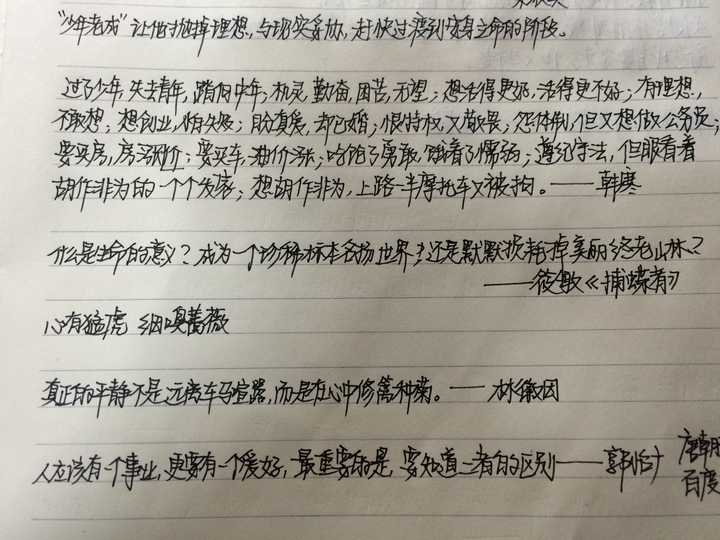 "少年老成"让他们抛掉理想,与现实妥协,赶快过渡到安身立命的阶段。
过了少年,失去青年,踏向中年;机灵,勤奋,困苦,无望;想活得更好,活得更不好;有理想,
不敢想;想创业,怕失败;盼真爱,却已婚;恨特权,又敬畏;怨体制,但又想做公务员;
要买房,房涨价;要买车,油价涨;哈哈了勇敢,饿着了懦弱;遵纪守法,但眼看着
胡作非为的一个个发家;想胡作非为,上路一半摩托车又被拘。——韩寒
什么是生命的意义?成为一个珍稀标本名扬世界?还是默默损耗掉美丽终老山林?
——筱敏《捕蝶者》
心有猛虎 细嗅蔷薇
真正的平静不是远离车马喧嚣,而是在心中修篱种菊。——林徽因
人应该有一个事业,更要有一个爱好,最重要的是,要知道二者的区别——郭
唐朝
百度